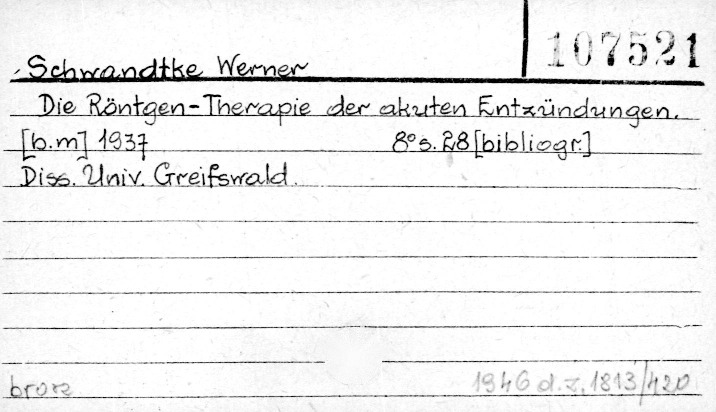 107521
Schwandtke Werner
Die Röntgen-Therapie der akuten Entzündungen.
[b.m] 1937 8° s. 28 [bibliogr.]
Diss. Univ. Greifswald.
brosz 1946 d.z. 1813/420